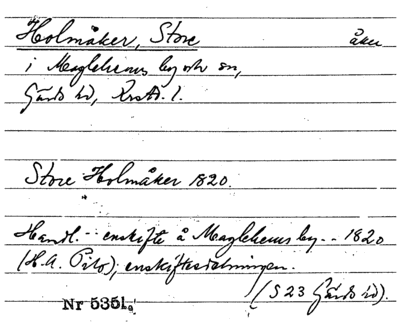 Holmåker, Store åker
i Maglehems by och sn,
Gärds hd, Krst. l.
Store Holmåker 1820.
Handl. -- enskifte å Maglehems by -- 1820
(H.A. Pilo); enskiftesdelningen.
(S 23 Gärds hd).
Nr 5351a